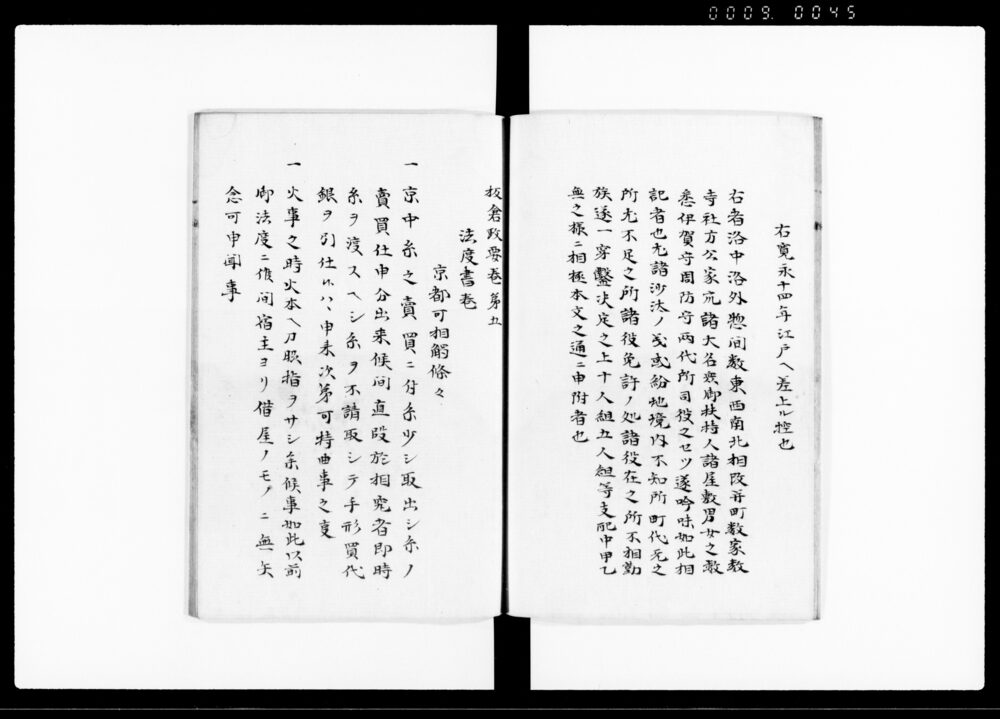 0009. 0045
右寛永十四年江戸ヘ差上ル控也
右者洛中洛外惣間数東西南北相改并町数家数
寺社方公家宛諸大名衆御扶持人諸屋敷男女之数
悉伊賀守周防守両代所司役之セツ遂吟味如此相
記者也尤諸沙汰ノ或紛地境内不知所町代先之
所尤不足之所諸役免許ノ処諸役在之所不相勤
族遂一穿鑿決定之上十人組五人組等支配中甲乙
無之様ニ相極本文之通ニ申附者也
板倉政要巻第五
法度書巻
京都可相觸條々
一 京中糸之賣買ニ付糸少シ取出シ糸ノ
賣買仕申分出来候間直段於相究者即時
糸ヲ渡スヘシ糸ヲ不請取シテ手形買代
銀ヲ引仕ルハ、申来次第可特曲事之叓
一 火事之時火本ヘ刀脇指ヲサシ参候事如此以前
御法度ニ候間宿主ヨリ借屋ノモノニ無失
念可申聞事